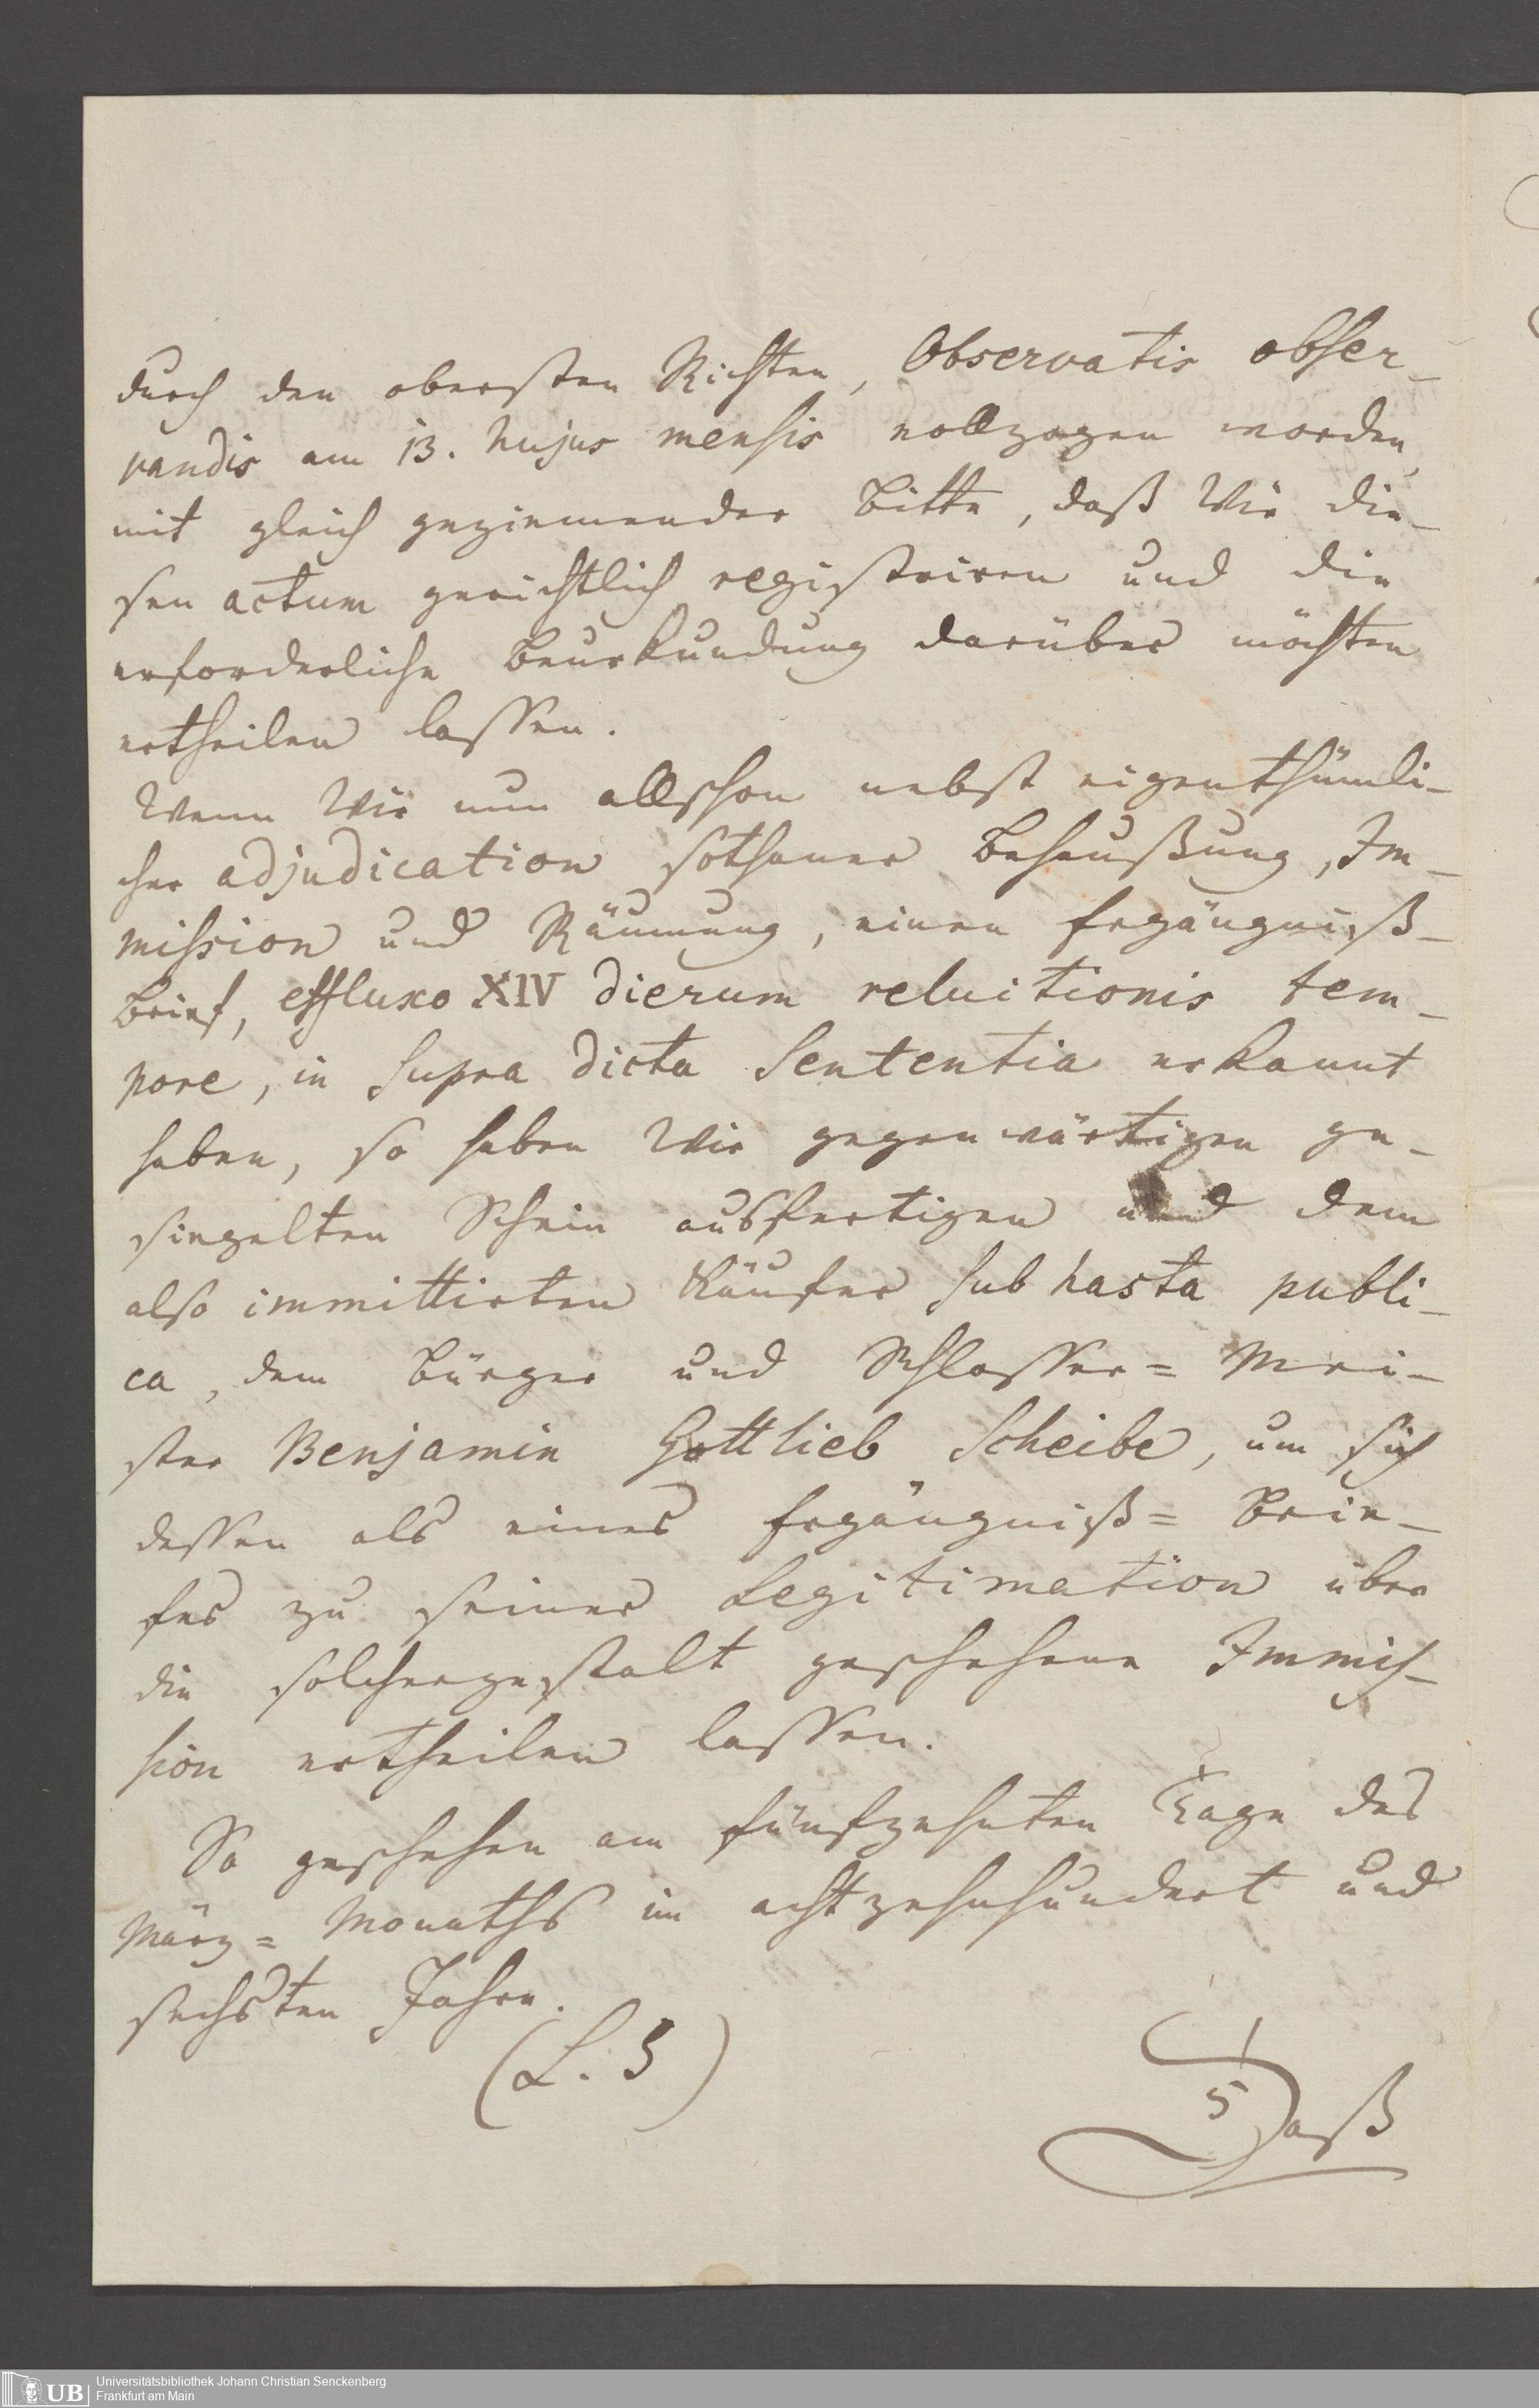 durch den obersten Richter, Observatis obser-
vandis am 13. hujus mensis vollzogen worden,
mit gleich geziemender Bitte, daß Wir die-
sen actum gerichtlich registriren und die
erforderliche Beurkundung darüber möchten
ertheilen lassen.
Wenn Wir nun allschon nebst eigenthümli-
cher adjudication sothaner Behaußung, Im-
mission und Räumung, einen Ergängniß-
Brief, effluxo XIV dierum reluitionis tem-
pore, in supra dicta Sententia erkannt
haben, so haben Wir gegenwärtigen ge-
siegelten Schein ausfertigen und dem
also immittirten Käufer sub hasta publi-
ca, dem Bürger und Schlosser= Mei-
ster Benjamin Gottlieb Scheibe, um sich
dessen als eines Ergängniß= Brie-
fes zu seiner Legitimation über
die solchergestalt geschehene Immis-
sion ertheilen lassen.
So geschehen am fünfzehnten Tage des
März= Monaths im achtzehnhundert und
sechsten Jahre.
(L. S)
Daß
Universitätsbibliothek Johann Christian Senckenberg
Frankfurt am Main
UB